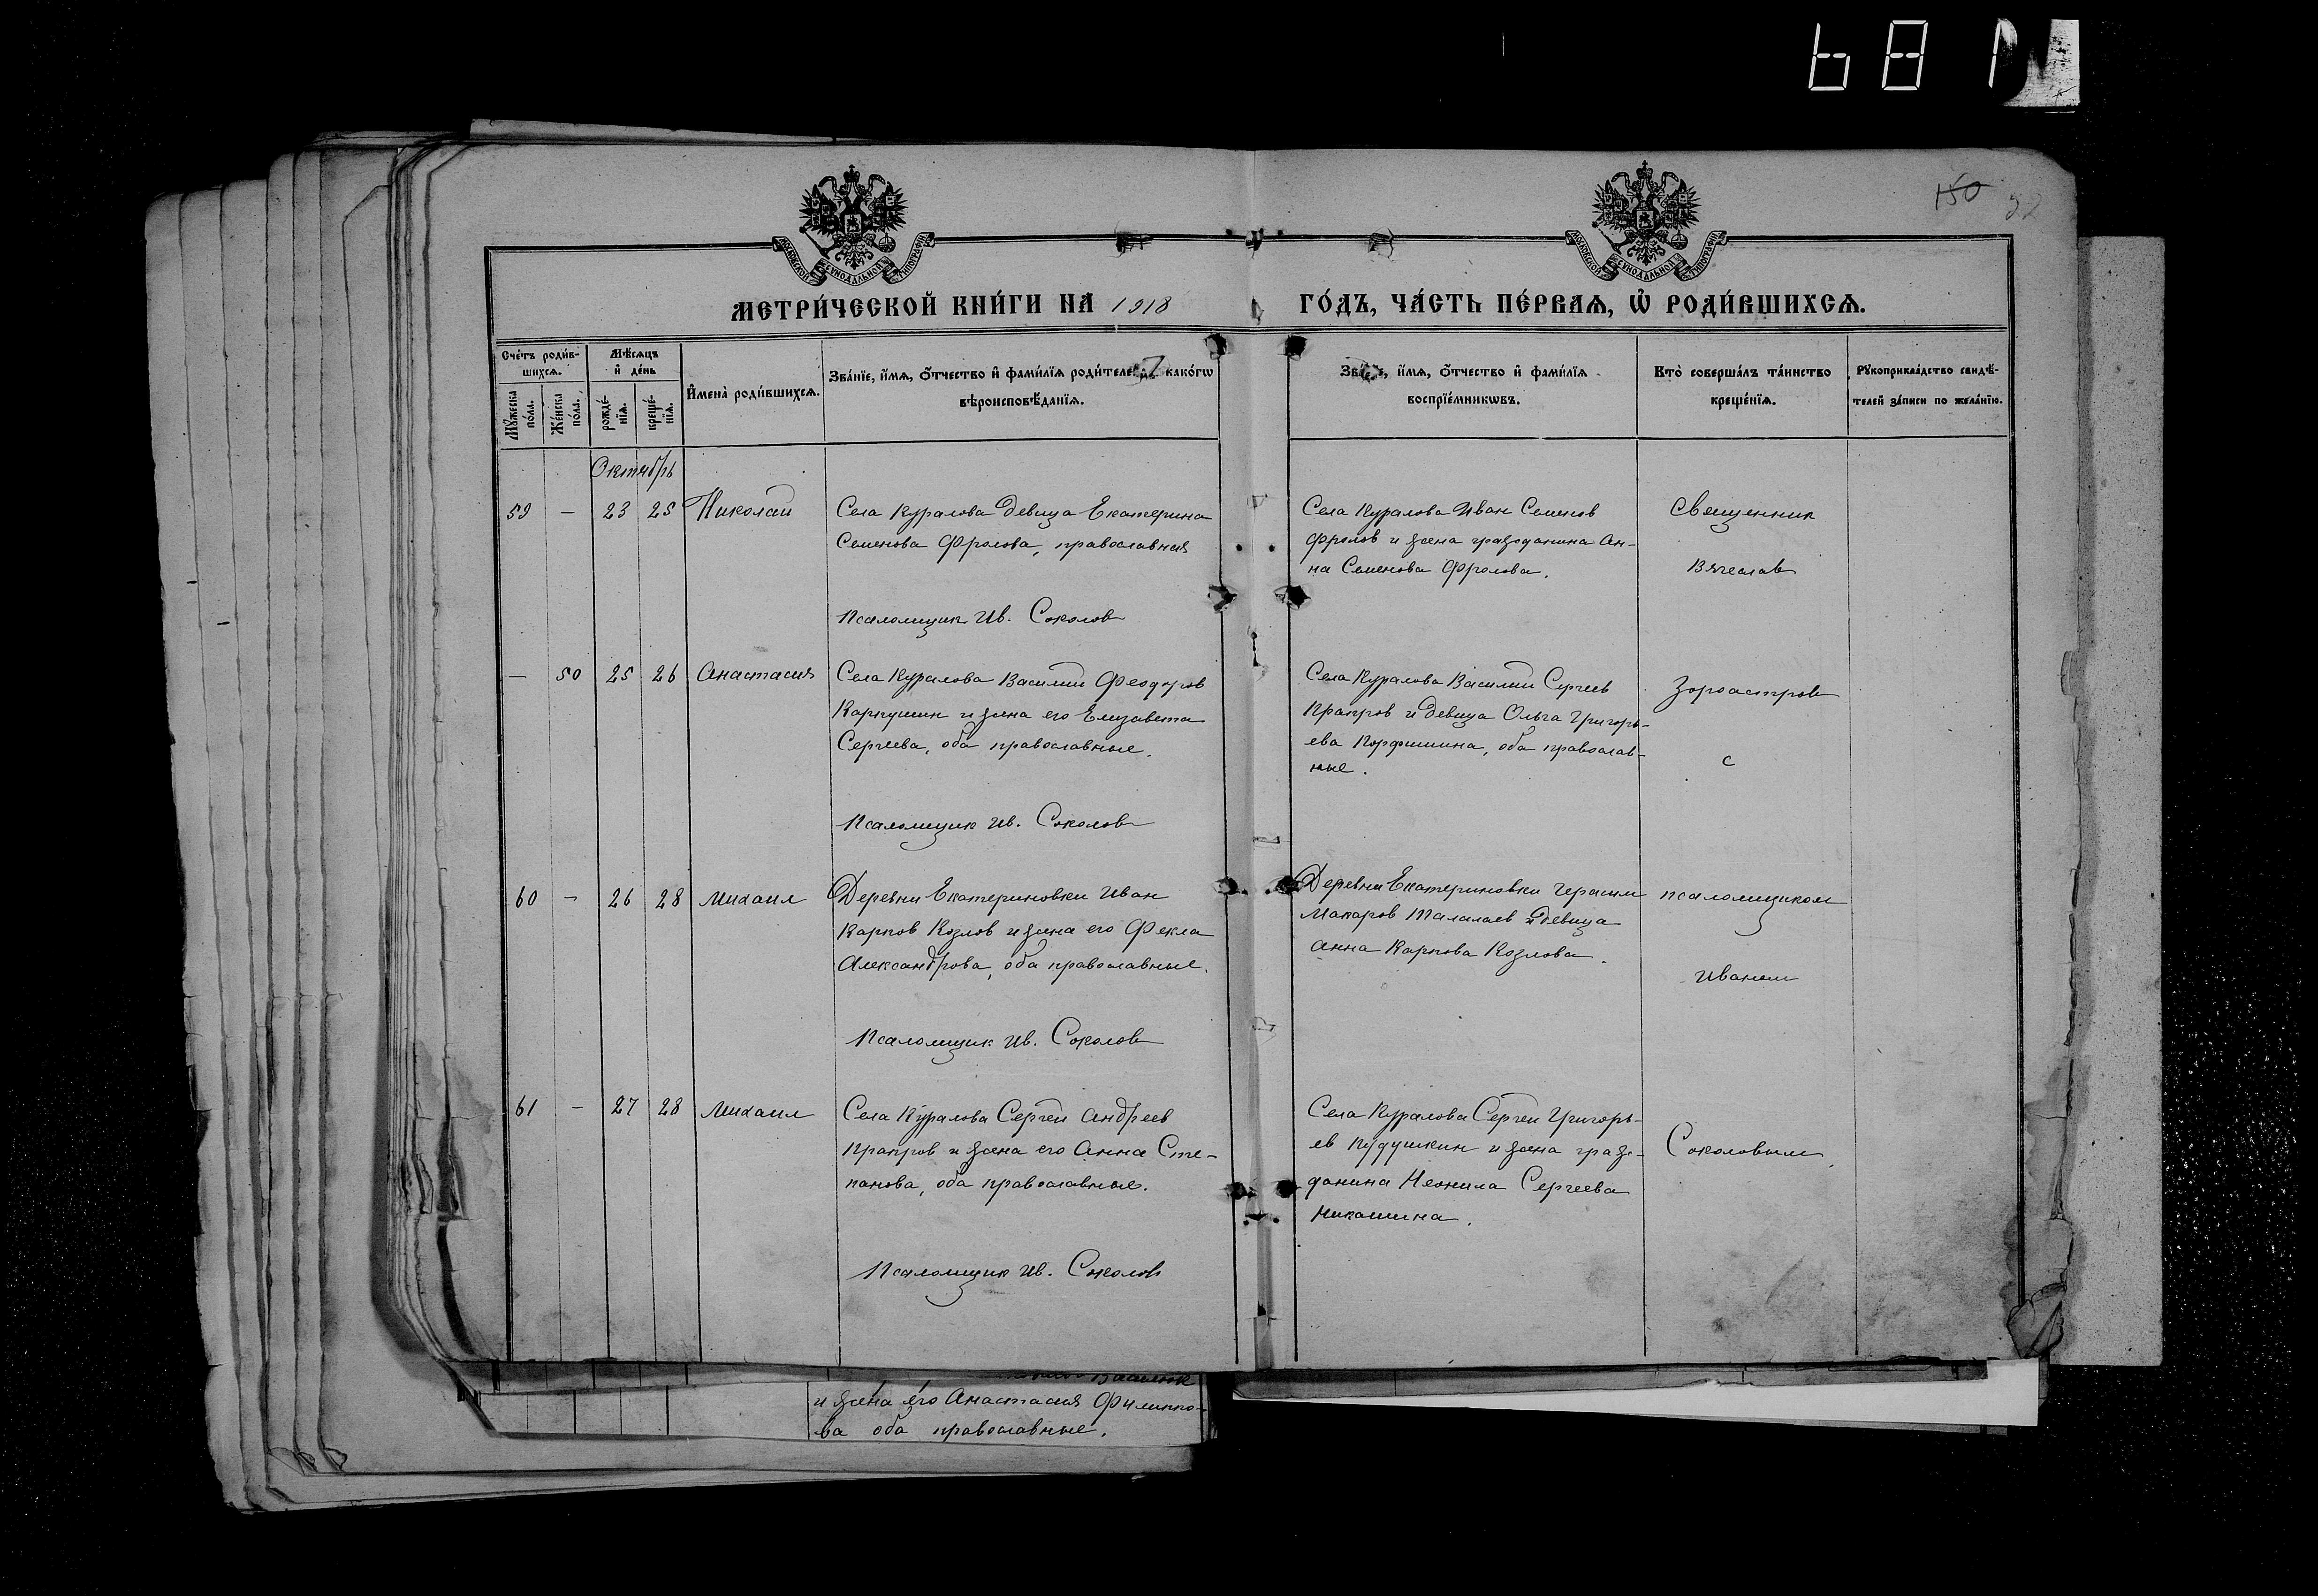 681
150 52
МОСКОВСКОЙ СУНОДАЛЬНОЙ ТИПОГРАФІИ
МОСКОВСКОЙ СУНОДАЛЬНОЙ ТИПОГРАФІИ
МЕТРИ́ЧЕСКОЙ КНИ́ГИ НА 1918 ГО́ДЪ, ЧА́СТЬ ПЕ́РВАѦ, Ѡ҆ РОДИ́ВШИХСѦ.
Сче́тъ роди́в-
шихсѧ.
Мѣ́сѧцъ
и҆ де́нь
Мꙋ́жеска
по́ла.
Же́нска
по́ла.
рожде́-
нїѧ.
креще́-
нїѧ.
И҆мена̀ роди́вшихсѧ.
Зва́нїе, и҆́мѧ, ѻ҆́тчество и҆ фами́лїѧ роди́телей, и҆ како́гѡ
вѣроисповѣ́данїѧ.
Зва́нїе, и҆́мѧ, ѻ҆́тчество и҆ фами́лїѧ
воспрїе́мникѡвъ.
Кто̀ соверша́лъ та́инство
креще́нїѧ.
Рꙋкоприкла́дство свидѣ́-
телей за́писи по жела́нїю.
Октябрь
59 — 23 25 Николай
Села Куралова девица Екатерина
Семенова Фролова, православная
Псаломщик Ив. Соколов
Села Куралова Иван Семенов
Фролов и жена гражданина Ан-
на Семенова Фролова.
Священник
Вячеслав
— 50 25 26 Анастасия
Села Куралова Василий Феодоров
Карпушин и жена его Елизавета
Сергеева, оба православные.
Псаломщик Ив. Соколов
Села Куралова Василий Сергеев
и девица Ольга Григорь-
ева оба православ-
ные.
Зороастров
с
60 — 26 28 Михаил
Деревни Екатериновки Иван
Карпов Козлов и жена его Фекла
Александрова, оба православные.
Псаломщик Ив. Соколов
Деревни Екатериновки Герасим
Макаров Талалаев и девица
Анна Карпова Козлова.
псаломщиком
Иваном
61 — 27 28 Михаил
Села Куралова Сергей Андреев
и жена его Анна Сте-
панова, оба православные.
Псаломщик Ив. Соколов
Села Куралова Сергей Григорь-
ев и жена граж-
данина Неонила Сергеева
Никашина.
Соколовым
и жена его Анастасия Филиппо-
ва оба православные.